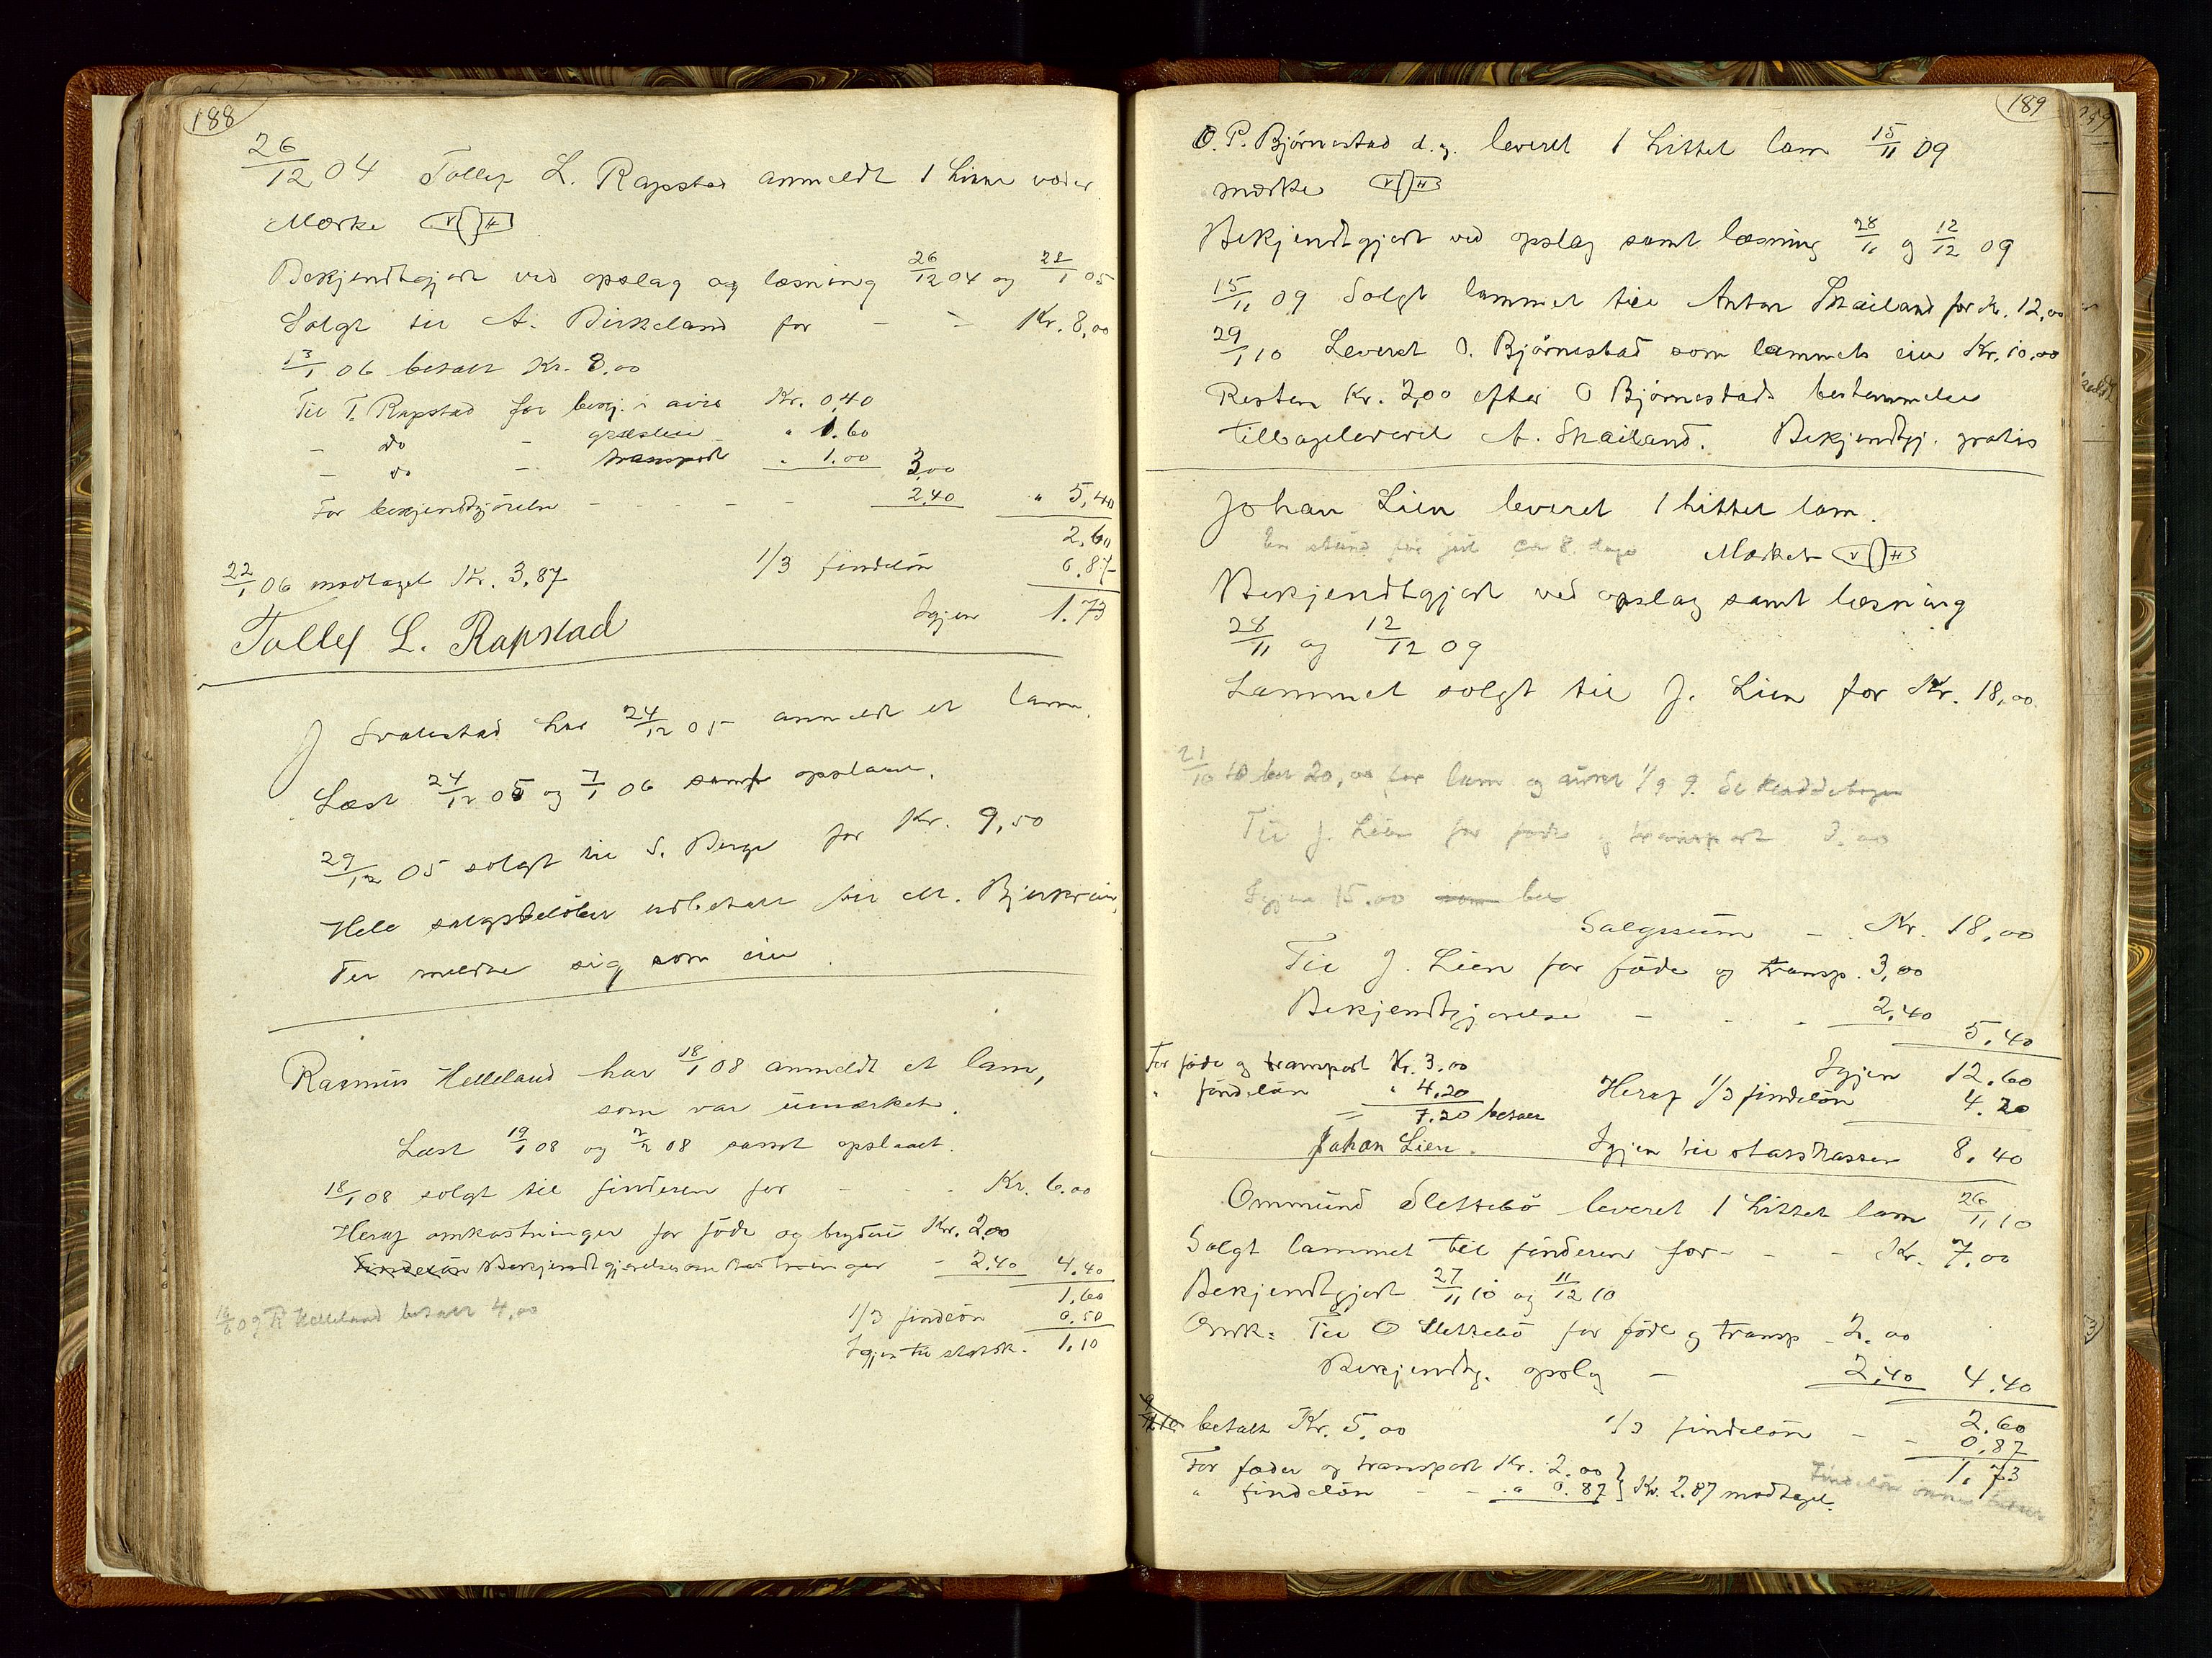 188
26/12 04 Tollef L. Rapstad anmeldt 1 hitte væder
Mærke V H
Bekjendtgjort ved opslag og læsning 26/12 04 og 22/1 05
Solgt til A. Birkeland for - - Kr. 8,00
13/1 06 betalt Kr. 8.00
Til T. Rapstad for bekj. i avis Kr. 0,40
- do - græsleie " 1.60
- do - transport " 1.00 3,00
For bekjendtgjørelse - - - - 2,40 " 5,40
2,60
22/1 06 modtaget Kr. 3,87 1/3 findeløn 0.87
Igjen 1.73
Tollef L. Rapstad
J Svalestad har 24/12 05 anmeldt et lam.
Læst 24/12 05 og 7/1 06 samt opslaaet.
29/12 05 solgt til S. Berge for Kr. 9,50
Hele salgsbeløbet udbetalt til M. Bjerkreim,
der meldte sig som eier.
Rasmus Helleland har 18/1 08 anmeldt et lam,
som var umærket.
Læst 19/1 08 og 2/2 08 samt opslaaet.
18/1 08 solgt til finderen for - - - Kr. 6.00
Heraf omkostninger for føde og bryderi Kr. 2.00
Findeløn Bekjendtgjørelsesomkostninger - 2.40 4,40
1,60
09 R Helleland betalt 4,00 1/3 findeløn 0,50
Igjen til statsk. 1,10
189
O. P. Bjørnestad d.y. leveret 1 hittet lam 15/11 09
mærke V H
Bekjendtgjort ved opslag samt læsning 28/11 og 12/12 09
15/11 09 Solgt lammet til Anton Skailand for Kr. 12,00
29/1 10 Leveret O. Bjørnestad som lammets eier Kr. 10,00
Resten Kr. 2,00 efter O Bjørnestads bestemmelse
tilbageleveret A. Skailand. Bekjendtgj. gratis
Johan Lien leveret 1 hittet lam.
En stund før jul ca 8. dage Mærket V H
Bekjendtgjort ved opslag samt læsning
28/11 og 12/12 09
Lammet solgt til J. Lien for Kr. 18,00
21/10 10 bet 20,00 for lam og 1/9 9. Se
Til J. Lien for føde og transport 3.00
Igjen 15.00 som bet
Salgssum - . Kr. 18,00
Til J. Lien for føde og transp. 3,00
Bekjendtgjørelse - - - 2,40
5,40
For føde og transport Kr. 3.00 Igjen 12.60
" findeløn " 4.20 Heraf 1/3 findeløn 4.20
= 7.20 betalt
Johan Lien. Igjen til statskassen 8,40
Ommund Slettebø leveret 1 hittet lam 26/11 10
Solgt lammet til finderen for - - - Kr. 7.00
Bekjendtgjort 27/11 10 og 11/12 10
Omk: Til O Slettebø for føde og transp - 2.00
Bekjendtg. opslag - 2,40 4,40
betalt Kr. 5.00 1/3 findeløn - 2.60
- 0,87
For føder og transport Kr. 2.00 1.73
" findeløn - - " 0.87 } Kr. 2.87 modtaget.
Findeløn